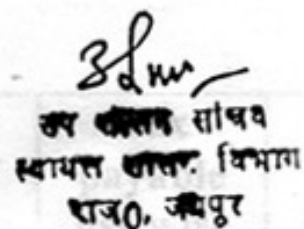 उप शासन सचिव
स्वायत्त शासन विभाग
राज0, जयपुर